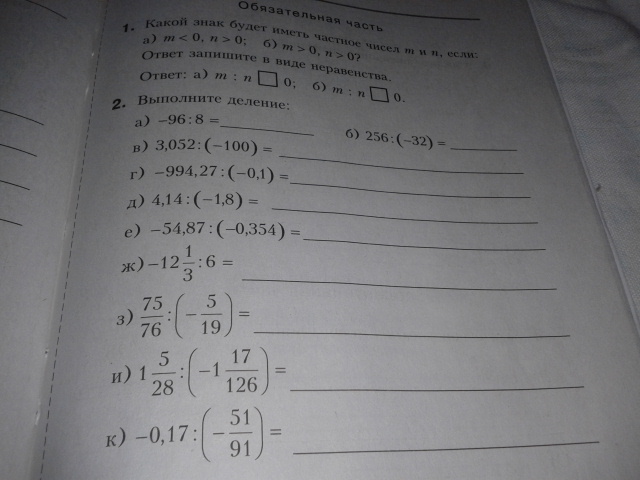 Обязательная часть
1. Какой знак будет иметь частное чисел m и n, если:
а) m < 0, n > 0; б) m > 0, n > 0?
Ответ запишите в виде неравенства.
Ответ: а) m : n □ 0; б) m : n □ 0.
2. Выполните деление:
а) –96 : 8 = ____ б) 256 : (–32) = ____
в) 3,052 : (–100) = ____
г) –994,27 : (–0,1) = ____
д) 4,14 : (–1,8) = ____
е) –54,87 : (–0,354) = ____
ж) –12 1/3 : 6 = ____
з) 75/76 : (– 5/19) = ____
и) 1 5/28 : (–1 17/126) = ____
к) –0,17 : (– 51/91) = ____